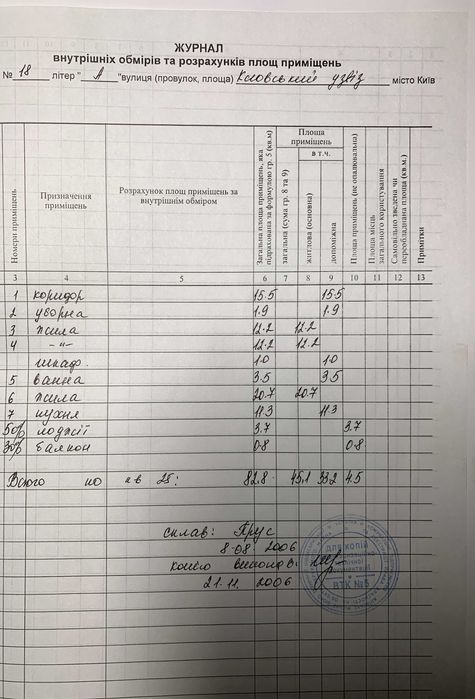 ЖУРНАЛ
внутрішніх обмірів та розрахунків площ приміщень
№ 18 літер " А "вулиця (провулок, площа) Кловський узвіз місто Київ
Номери приміщень
Призначення приміщень
Розрахунок площ приміщень за внутрішнім обміром
Загальна площа приміщень, яка підрахована за формулою гр. 5 (кв.м)
Площа приміщень
загальна (сума гр. 8 та 9)
в т.ч.
житлова (основна)
допоміжна
Площа приміщень (не опалювальна)
Площа місць загального користування
Самовільно зведена чи переобладнана площа (кв.м.)
Примітки
3 4 5 6 7 8 9 10 11 12 13
1 коридор 15.5 15.5
2 уборна 1.9 1.9
3 жила 12.2 12.2
4 -"- 12.2 12.2
шкаф. 1.0 1.0
5 ванна 3.5 3.5
6 жила 20.7 20.7
7 кухня 11.3 11.3
50% лоджії 3.7 3.7
30% балкон 0.8 0.8
Всього по кв 25: 82.8 45.1 33.2 4.5
склав: Прус
8.08.2006
копію
21.11.2006
для копій
ВТК №5